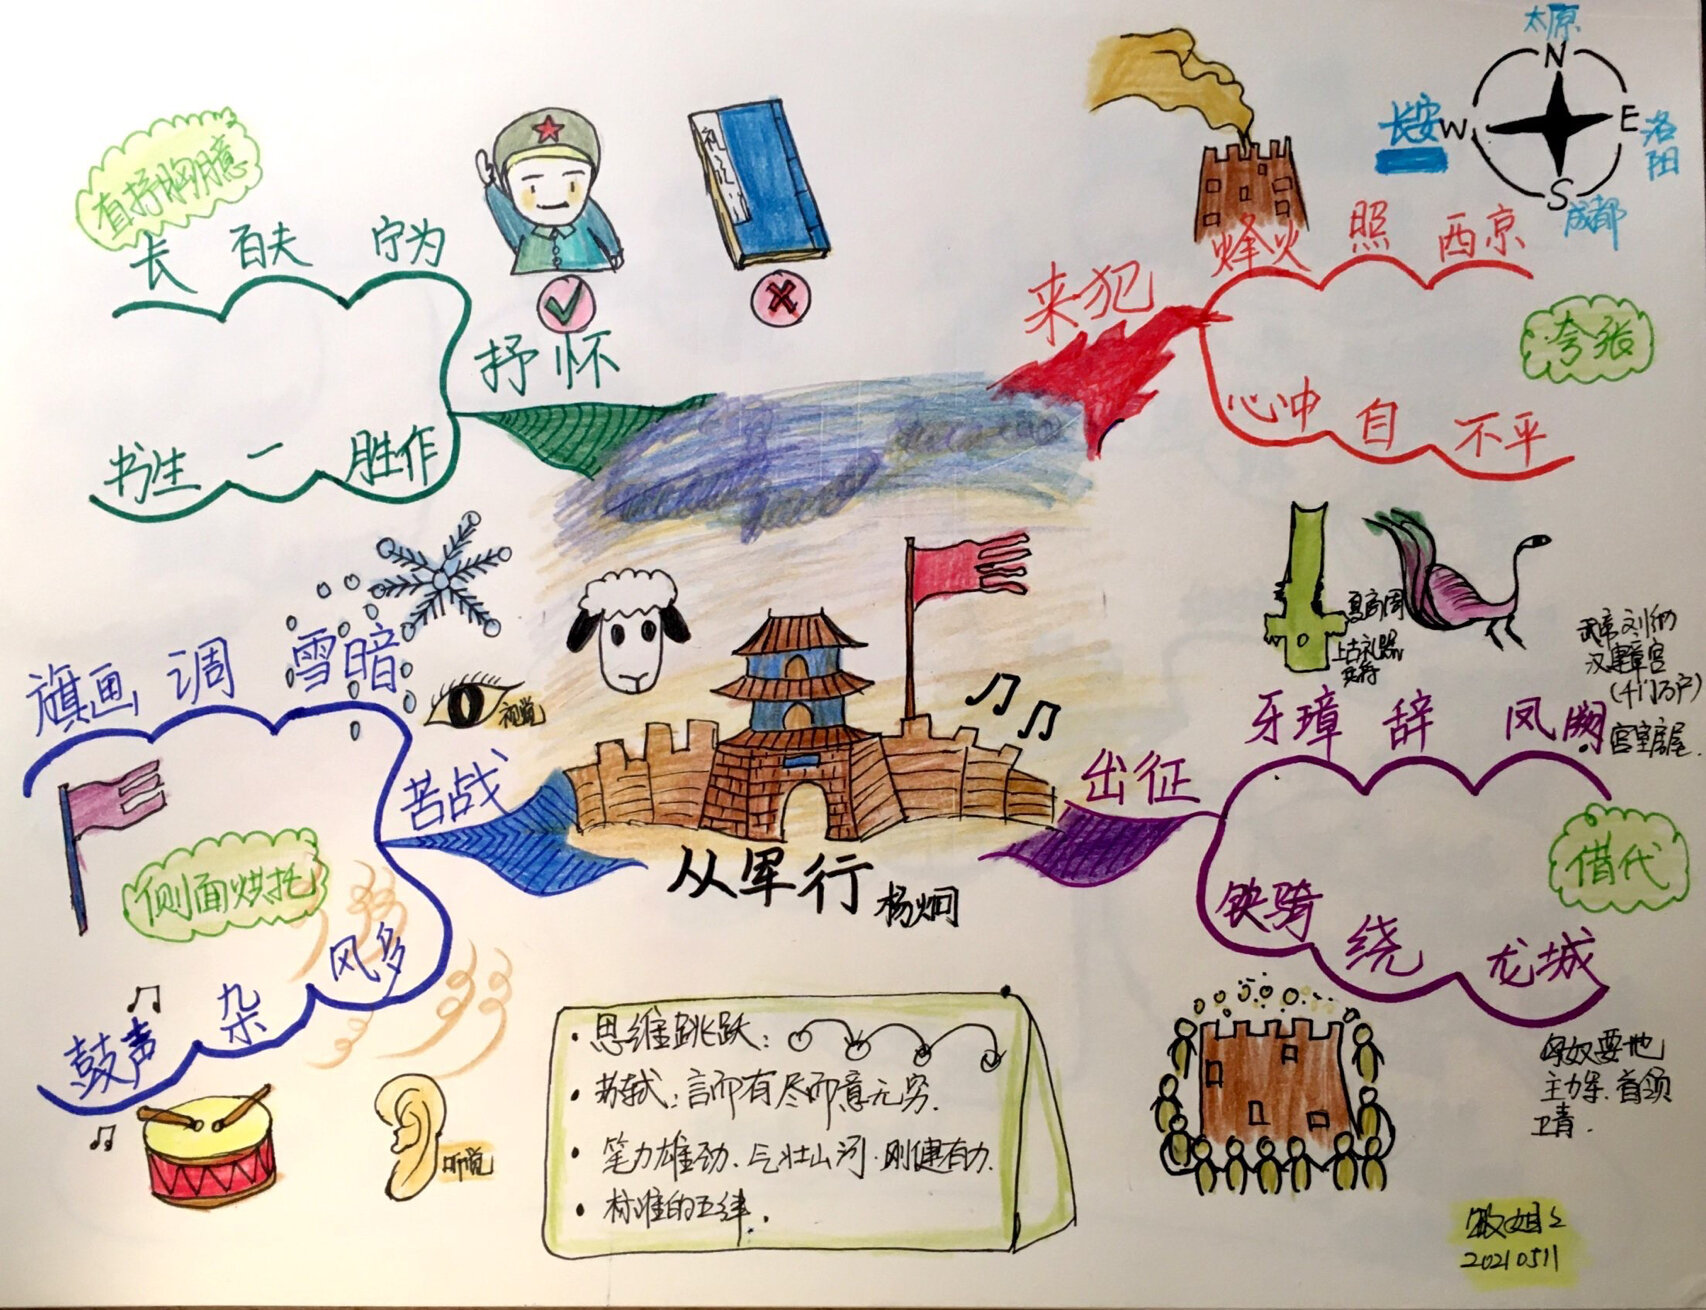 太原
N
长安
W
E
洛阳
S
成都
来犯
烽火 照 西京
夸张
心冲 自 不平
出征
夏商周
上古礼器
兵符
武帝刘彻
汉建章宫
(千门万户)
宫室房屋.
牙璋 辞 凤阙
借代
铁骑 绕 龙城
匈奴要地
主力军.首领
卫青.
苦战
旗画 调 雪暗
视觉
侧面烘托
鼓声 杂 风多
听觉
抒怀
直抒胸臆
长 百夫 宁为
书生 一 胜作
从军行 杨炯
·思维跳跃：
·苏轼：言而有尽而意无穷.
·笔力雄劲、气壮山河.刚健有力.
·标准的五律.
20210511